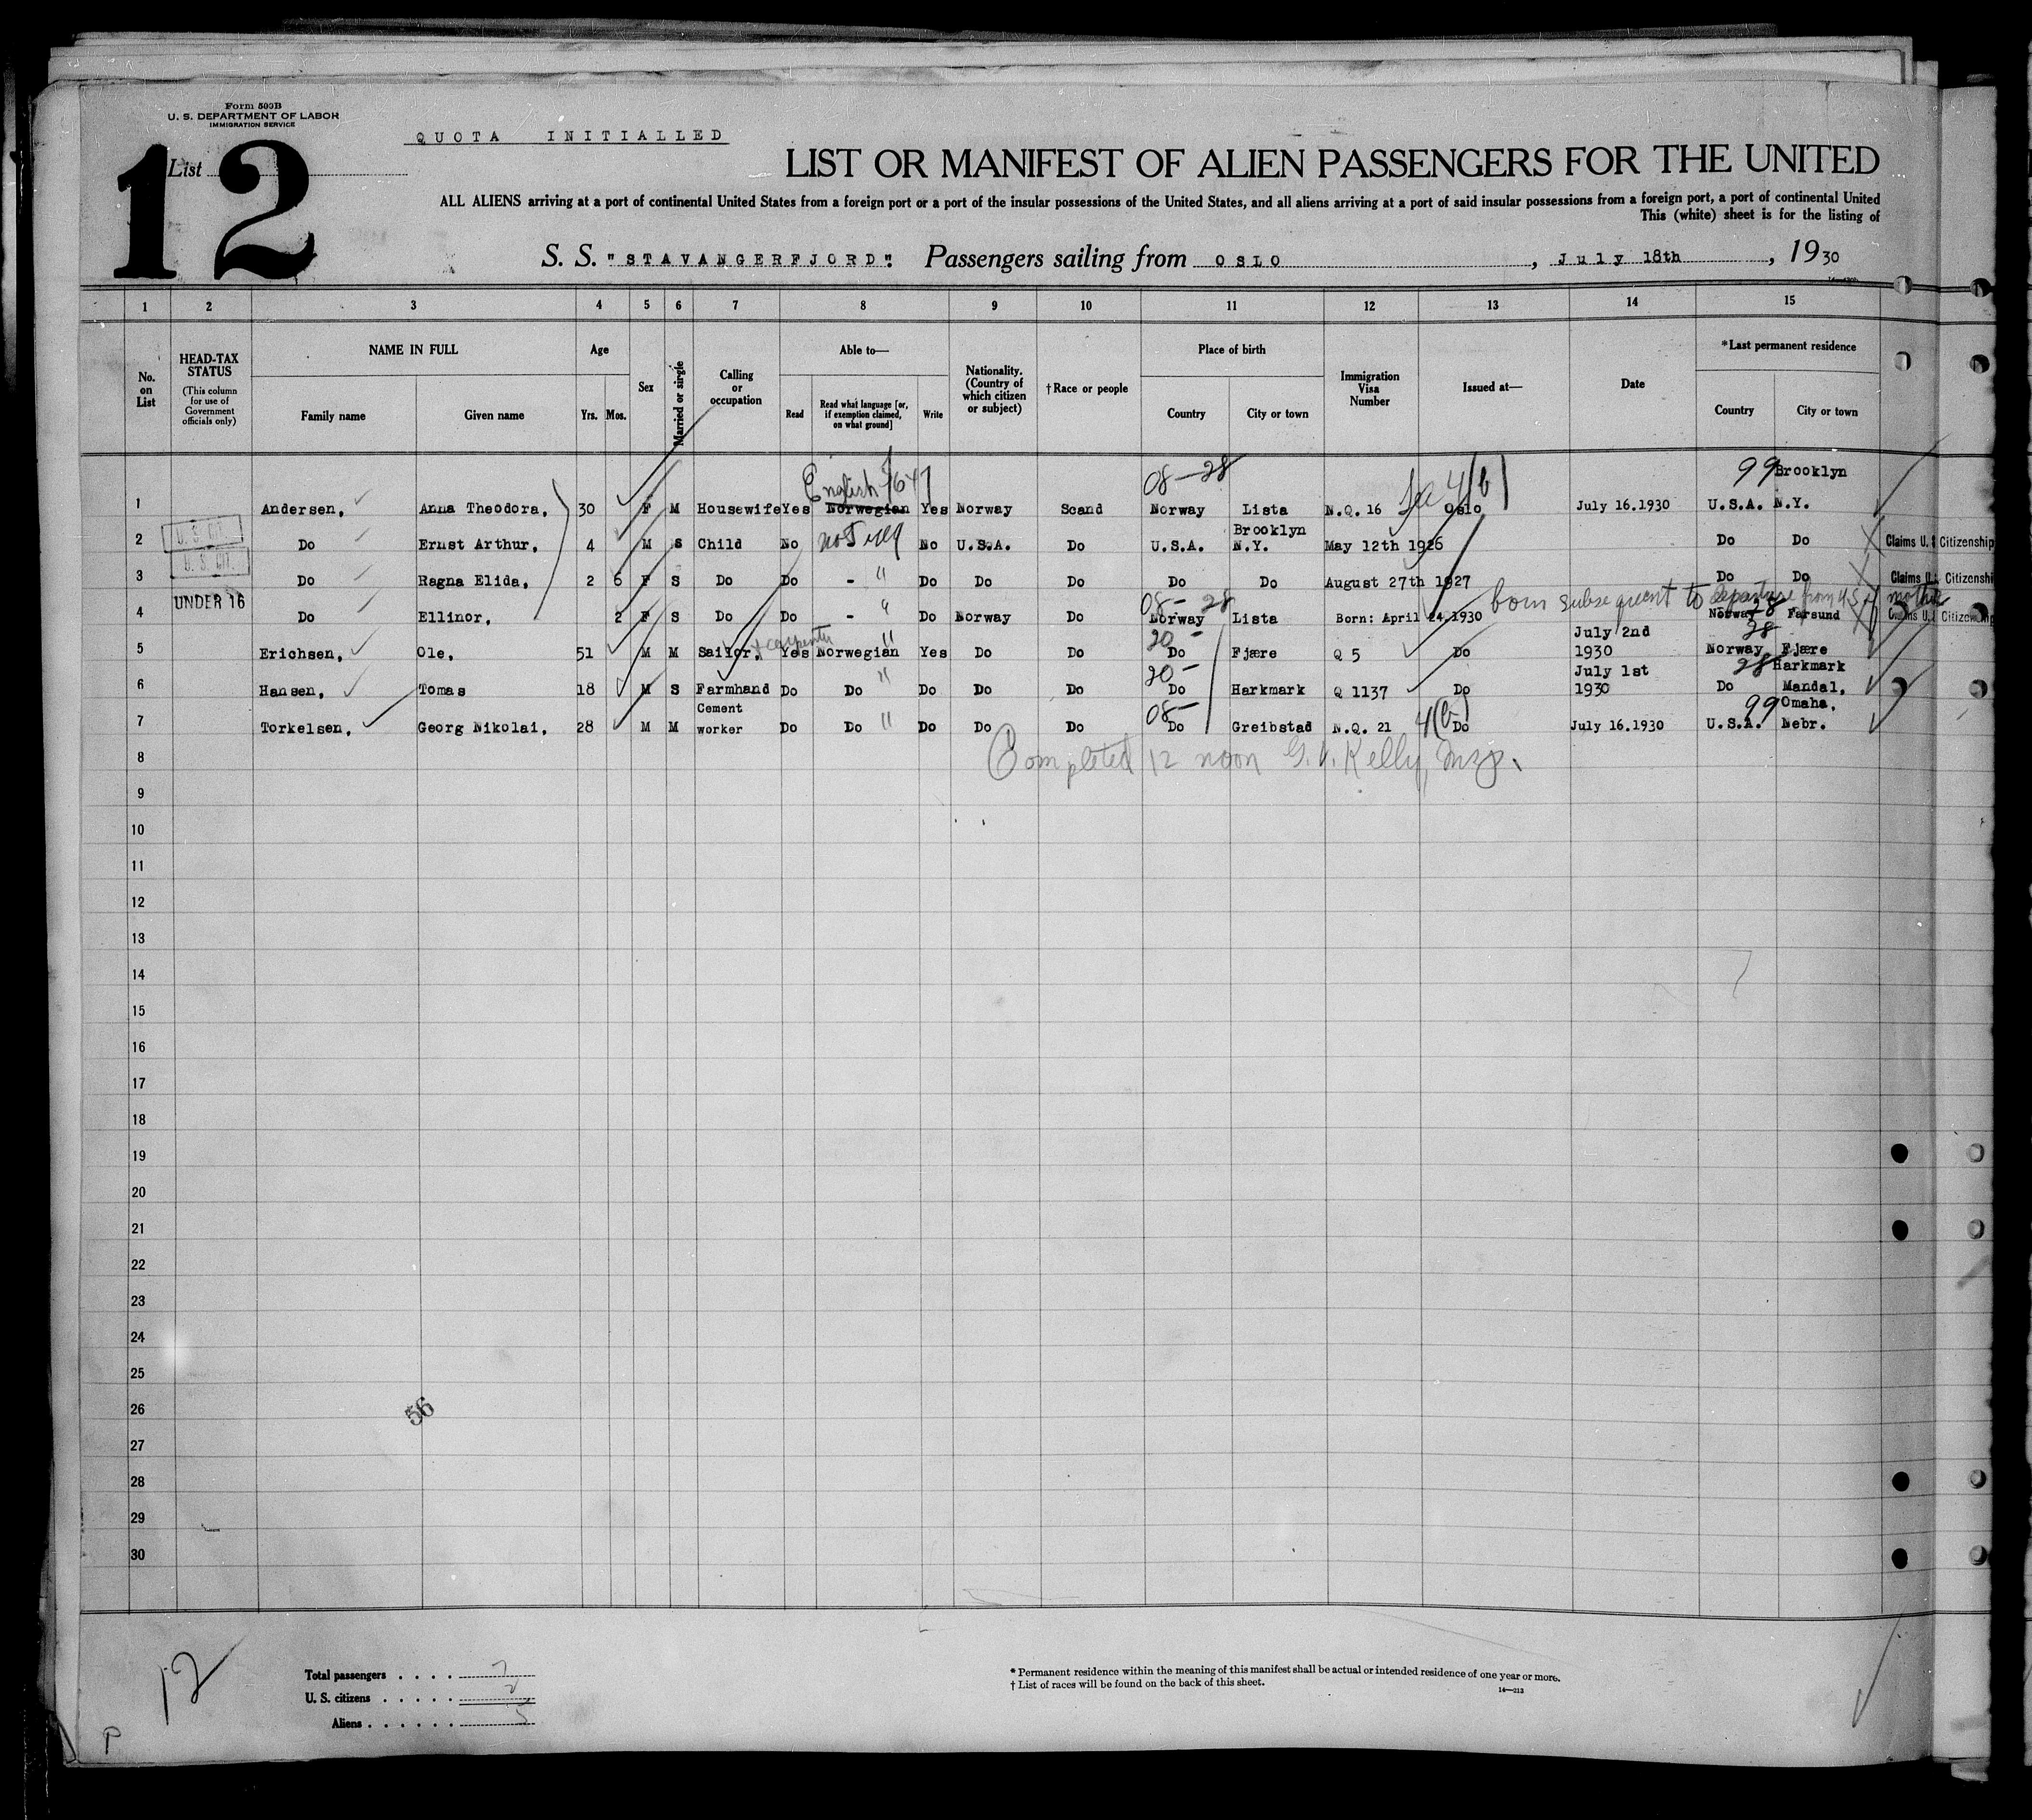 Form 500B
U. S. DEPARTMENT OF LABOR
IMMIGRATION SERVICE
List
12
QUOTA INITIALLED
LIST OR MANIFEST OF ALIEN PASSENGERS FOR THE UNITED
ALL ALIENS arriving at a port of continental United States from a foreign port or a port of the insular possessions of the United States, and all aliens arriving at a port of said insular possessions from a foreign port, a port of continental United
This (white) sheet is for the listing of
S. S. "STAVANGERFJORD". Passengers sailing from OSLO, July 18th, 1930
1 2 3 4 5 6 7 8 9 10 11 12 13 14 15
No. on List
HEAD-TAX STATUS (This column for use of Government officials only)
NAME IN FULL Family name Given name
Age Yrs. Mos.
Sex
Married or single
Calling or occupation
Able to— Read Read what language [or, if exemption claimed, on what ground] Write
Nationality. (Country of which citizen or subject)
†Race or people
Place of birth Country City or town
Immigration Visa Number
Issued at—
Date
*Last permanent residence Country City or town
English 08—28 4(b) 99 Brooklyn
1 Andersen, Anna Theodora, 30 F M Housewife Yes Norwegian Yes Norway Scand Norway Lista N.Q. 16 Oslo July 16.1930 U.S.A. N.Y.
U. S. CIT.
2 Do Ernst Arthur, 4 M S Child No No U.S.A. Do U.S.A. Brooklyn N.Y. May 12th 1926 Do Do Claims U.S. Citizenship
U. S. CIT.
3 Do Ragna Elida, 2 6 F S Do Do - " Do Do Do Do Do August 27th 1927 Do Do Claims U. Citizenshi
born subsequent to departure from U.S. of mother
UNDER 16
4 Do Ellinor, 2 F S Do Do - " Do Norway Do 08-28 Norway Lista Born: April 24.1930 28 Norway Farsund Claims U. Citizenship
5 Erichsen, Ole, 51 M M Sailor, & carpenter Yes Norwegian " Yes Do Do 20- Do Fjære Q 5 Do July 2nd 1930 28 Norway Fjære
6 Hansen, Tomas 18 M S Farmhand Do Do " Do Do Do 20- Do Harkmark Q 1137 Do July 1st 1930 28 Do Harkmark Mandal,
7 Torkelsen, Georg Nikolai, 28 M M Cement worker Do Do " Do Do Do 08- Do Greibstad N.Q. 21 4(b) Do July 16.1930 99 U.S.A. Omaha, Nebr.
Completed 12 noon G. V. Kelly, Insp.
8
9
10
11
12
13
14
15
16
17
18
19
20
21
22
23
24
25
26
27
28
29
30
56
12
P
Total passengers . . . . 7
U. S. citizens . . . . . 2
Aliens . . . . . . 5
* Permanent residence within the meaning of this manifest shall be actual or intended residence of one year or more.
† List of races will be found on the back of this sheet.
14—213